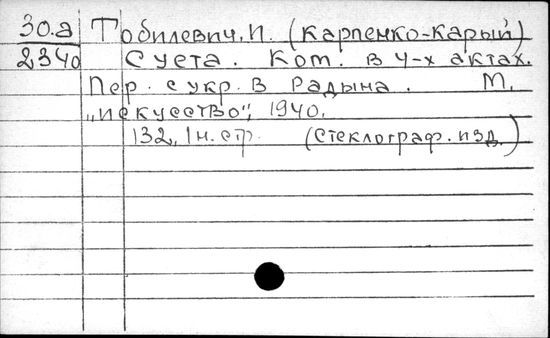 30.а Тобилевич, И. (Карпенко-Карый)
2340 Суета. Ком. в 4-х актах.
Пер. с укр. В Радына. М.
„Искусство", 1940.
132, 1 н. стр. (Стеклограф. изд.)